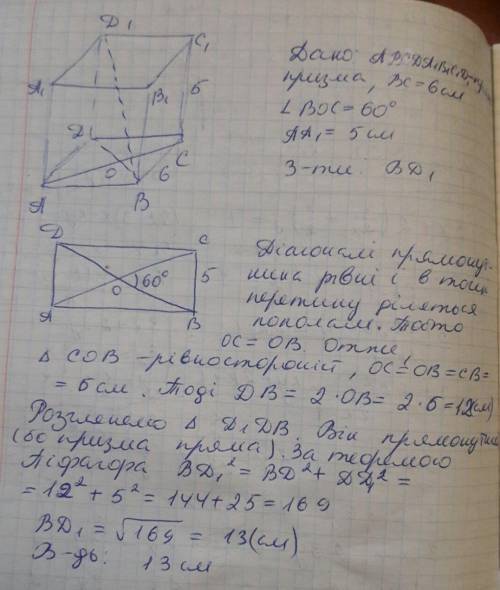 D₁
C₁
A₁
B₁
5
D
C
O
6
A
B
Дано ABCDA₁B₁C₁D₁-
призма, BC=6см
∠BOC=60°
AA₁=5см
З-ти: BD₁
D
C
60°
5
O
A
B
Діагоналі прямокут-
ника рівні і в точці
перетину діляться
пополам. Тобто
OC=OB. Отже,
Δ COB -рівносторонній, OC=OB=CB=
= 6см. Тоді DB= 2·OB= 2·6=12(см)
Розглянемо Δ D₁DB. Він прямокутний
(бо призма пряма). За теремою
Піфагора BD₁²=BD²+DD₁²=
=12²+5²=144+25=169
BD₁=√169 = 13(см)
В-дь: 13см